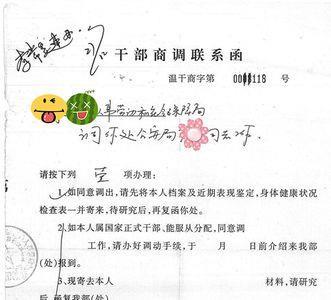 干部商调联系函
温干商字第 0008118 号
人事劳动和社会保障局
请按下列 壹 项办理：
1.如同意调出，请先将本人档案及近期表现鉴定，身体健康状况
检查表一并寄来，待研究后，再复函你处。
2.如本人属国家正式干部、能服从分配，同意调
工作，请办好调动手续，于 月 日前介绍来我部
(处)报到。
3.现寄去本人 材料，请研究
后，函复我部(处)